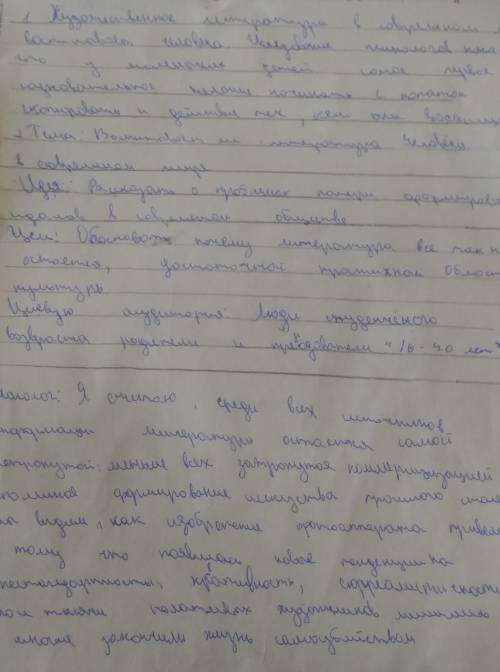 1. Художественное литература в современном
воспитовает человека. Исследование психологов пока
что у маленьких детей самое первое
познавательное желание начинать с попыток
скопировать и действия тех, кем они восхищ
1 Тема: Воспитовает ли литература человека
в современном мире
Идея: Рассказать о проблемах потери сформирова
идеалов в современном обществе
Цели: Обосновать почему литература все так
остается, достаточной практичной област
культуры
Целевую аудитория: Люди студенческого
возраста родители и преподователи "16-40 лет"
Я считаю, среди всех источников
информации литература остается самой
нетронутой, меньше всех затронутоя коммерциализацией
поминая формирование искусства прошлого столе
мы видим, как изобретение фотоаппарата привело
к тому что появились новые тенденции на
нестандартность, креативность, сюрреалистичность
и тысячи талантливых художников
многие закончили жизнь самоубийством